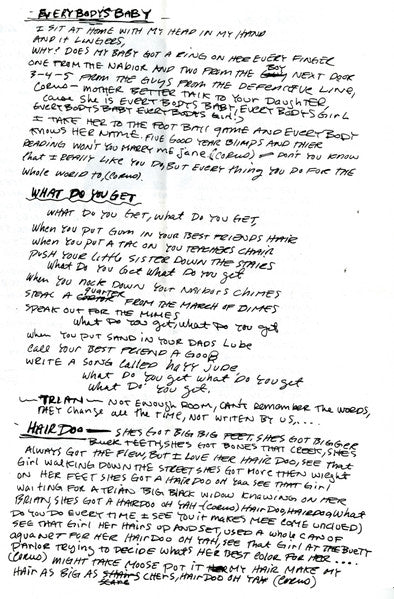 EVERYBODYS BABY
I SIT AT HOME WITH MY HEAD IN MY HAND
AND IT LINGERS,
WHY? DOES MY BABY GOT A RING ON HER EVERY FINGER
ONE FROM THE NABIOR AND TWO FROM THE BOY NEXT DOOR
3-4-5 FROM THE GUYS FROM THE DEFENCEFUL LINE,
CORUS- MOTHER BETTER TALK TO YOUR DAUGHTER,
CAUSE SHE IS EVERYBODYS BABY, EVERYBODYS GIRL
EVERYBODYS BABY EVERYBODYS GIRL!)
I TAKE HER TO THE FOOT BALL GAME AND EVERYBODY
KNOWS HER NAME. FIVE GOOD YEAR BLIMPS AND THIER
READING WON'T YOU MARRY ME JANE (CORUS) - DON'T YOU KNOW
that I REALLY LIKE YOU DO, BUT EVERY thing YOU DO FOR THE
Whole WORLD to, (CORUS).
WHAT DO YOU GET
WHAT DO YOU GET, WHAT DO YOU GET,
WHEN YOU PUT GUM IN YOUR BEST FRIENDS HAIR
WHEN YOU PUT A TAC ON YOU TEACHERS CHAIR
PUSH YOUR LITTLE SISTER DOWN THE STAIRS
WHAT DO YOU GET WHAT DO YOU get
WHEN YOU NOCK DOWN YOUR NAIBORS CHIMES
STEAL A QUARTER FROM THE MARCH OF DIMES
SPEAK OUT FOR THE MIMES
WHAT DO YOU get, WHAT DO YOU get
WHEN YOU PUT SAND IN YOUR DADS LUBE
CALL YOUR BEST FRIEND A GOOB
WRITE A SONG CALLED HAYY JUDE
WHAT DO YOU GET WHAT DO YOU GET
WHAT DO YOU GET.
TRIAN - NOT ENOUGH ROOM, CAN'T REMEMBER THE WORDS,
THEY CHANGE ALL THE TIME, NOT WRITEN BY US....
HAIR DOO - SHE'S GOT BIG BIG FEET, SHE'S GOT BIGGER
BUCK TEETH, SHE'S GOT BONES THAT CREEK, SHE'S
ALWAYS GOT THE FLEW, BUT I LOVE HER HAIR DOO, SEE THAT
GIRL WALKING DOWN THE STREET SHE'S GOT MORE THEN WIEGHT
ON HER FEET SHE'S GOT A HAIRDOO OH YAA SEE THAT GIRL
WAITING FOR A TRIAN BIG BLACK WIDOW KNAWING ON HER
BRIAN, SHE'S GOT A HARDOO OH YAH (CORUS) HAIRDOO, HAIRDOO (WHAT
DO YOU DO EVERY TIME I SEE YOU IT MAKES MEE COME UNGLUED)
SEE THAT GIRL HER HAIRS UP AND SET, USED A WHOLE CAN OF
AQUANET FOR HER HAIRDOO OH YAH, SEE THAT GIRL AT THE BUETY
PARLOR TRYING TO DECIDE WHATS HER BEST COLOR FOR HER....
(CORUS) MIGHT TAKE MOOSE PUT IT MY HAIR MAKE MY
HAIR AS BIG AS CHERS, HAIRDOO OH YAH (CORUS)